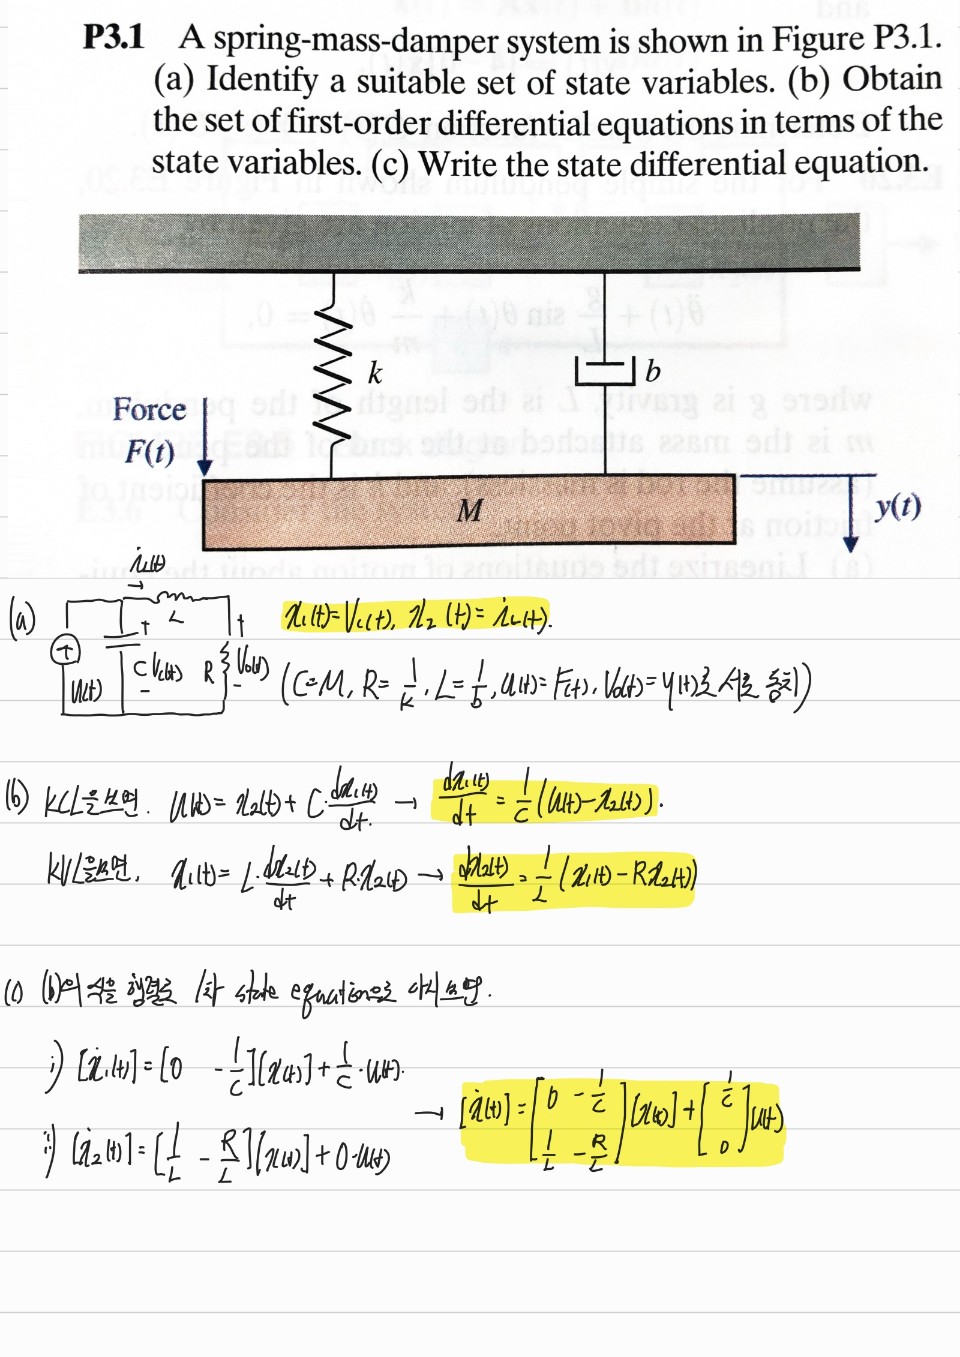 P3.1 A spring-mass-damper system is shown in Figure P3.1.
(a) Identify a suitable set of state variables. (b) Obtain
the set of first-order differential equations in terms of the
state variables. (c) Write the state differential equation.
k
b
Force
F(t)
M
y(t)
iL(t)
(a)
+ L +
C Vc(t) R Vo(t)
U(t) - -
x₁(t)=Vc(t), x₂(t)=iL(t).
(C=M, R=1/k, L=1/b, U(t)=F(t), Vo(t)=y(t)로 서로 등치)
(b) KCL을 보면. U(t)=x₂(t)+C·dx₁(t)/dt. → dx₁(t)/dt = 1/C (U(t)-x₂(t)).
KVL을 보면, x₁(t)=L·dx₂(t)/dt + R·x₂(t) → dx₂(t)/dt = 1/L (x₁(t)-Rx₂(t))
(c) (b)의 식을 행렬로 1차 state equation으로 다시 보면.
i) [ẋ₁(t)]=[0 -1/C][x(t)]+1/C·U(t).
ii) [ẋ₂(t)]=[1/L -R/L][x(t)]+0·U(t)
→ [ẋ(t)]=[0 -1/C
1/L -R/L][x(t)]+[1/C
0]U(t)